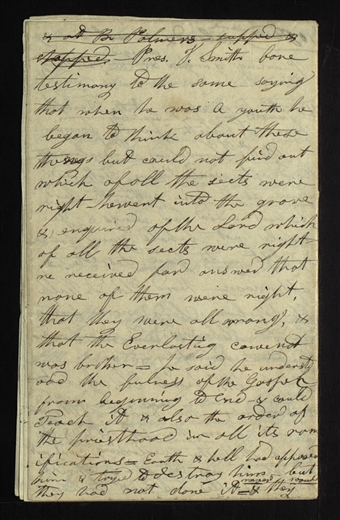 & at Br Palmers - supped &
stopped - Pres. J. Smith bore
testimony to the same saying
that when he was a youth he
began to think about these
things but could not find out
which of all the sects were
right he went into the grove
& enquired of the Lord which
of all the sects were right
re received for answer that
none of them were right,
that they were all wrong, &
that the Everlasting covena[n]t
was broken = he said he underst
ood the fulness of the Gospel
from beginning to End & could
Teach it & also the order of
the priesthood in all its ram
ifications = Earth & hell had opposed
him & tryed to destroy him, but
they had not done it = & they never would